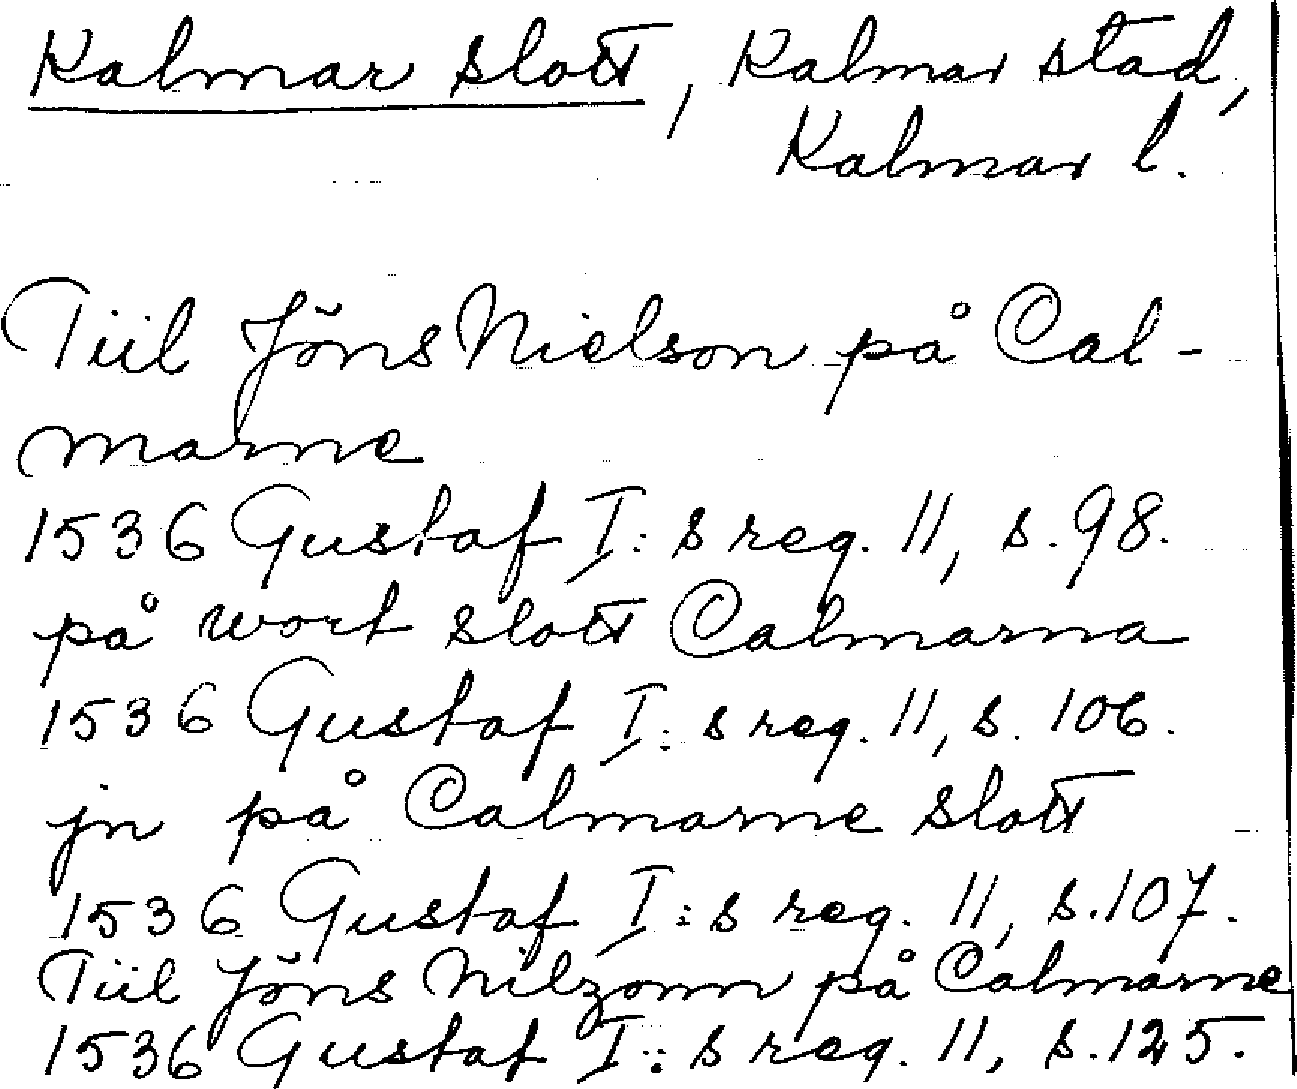 Kalmar slott, Kalmar stad,
Kalmar l.
Tiil Jöns Nielson på Cal-
marne
1536 Gustaf I: s reg. 11, s. 98.
på wort slott Calmarna
1536 Gustaf I: s reg. 11, s. 106.
jn på Calmarne slott
1536 Gustaf I: s reg. 11, s. 107.
Tiil Jöns Nilzonn på Calmarne
1536 Gustaf I: s reg. 11, s. 125.